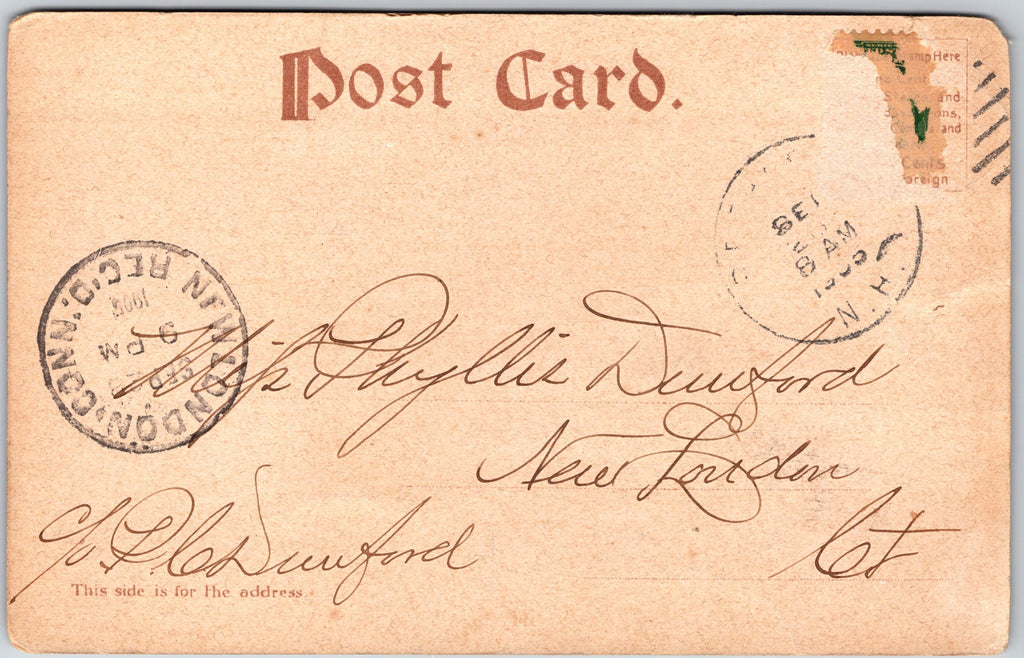 Post Card.
SERIES
Stamp Here
and
and
Cents
Foreign
8 AM
N.H
NEW LONDON, CONN. REC'D.
SEP
9 PM
Miss Phyllis Dunford
New London
Ct
c/o P. C. Dunford
This side is for the address.